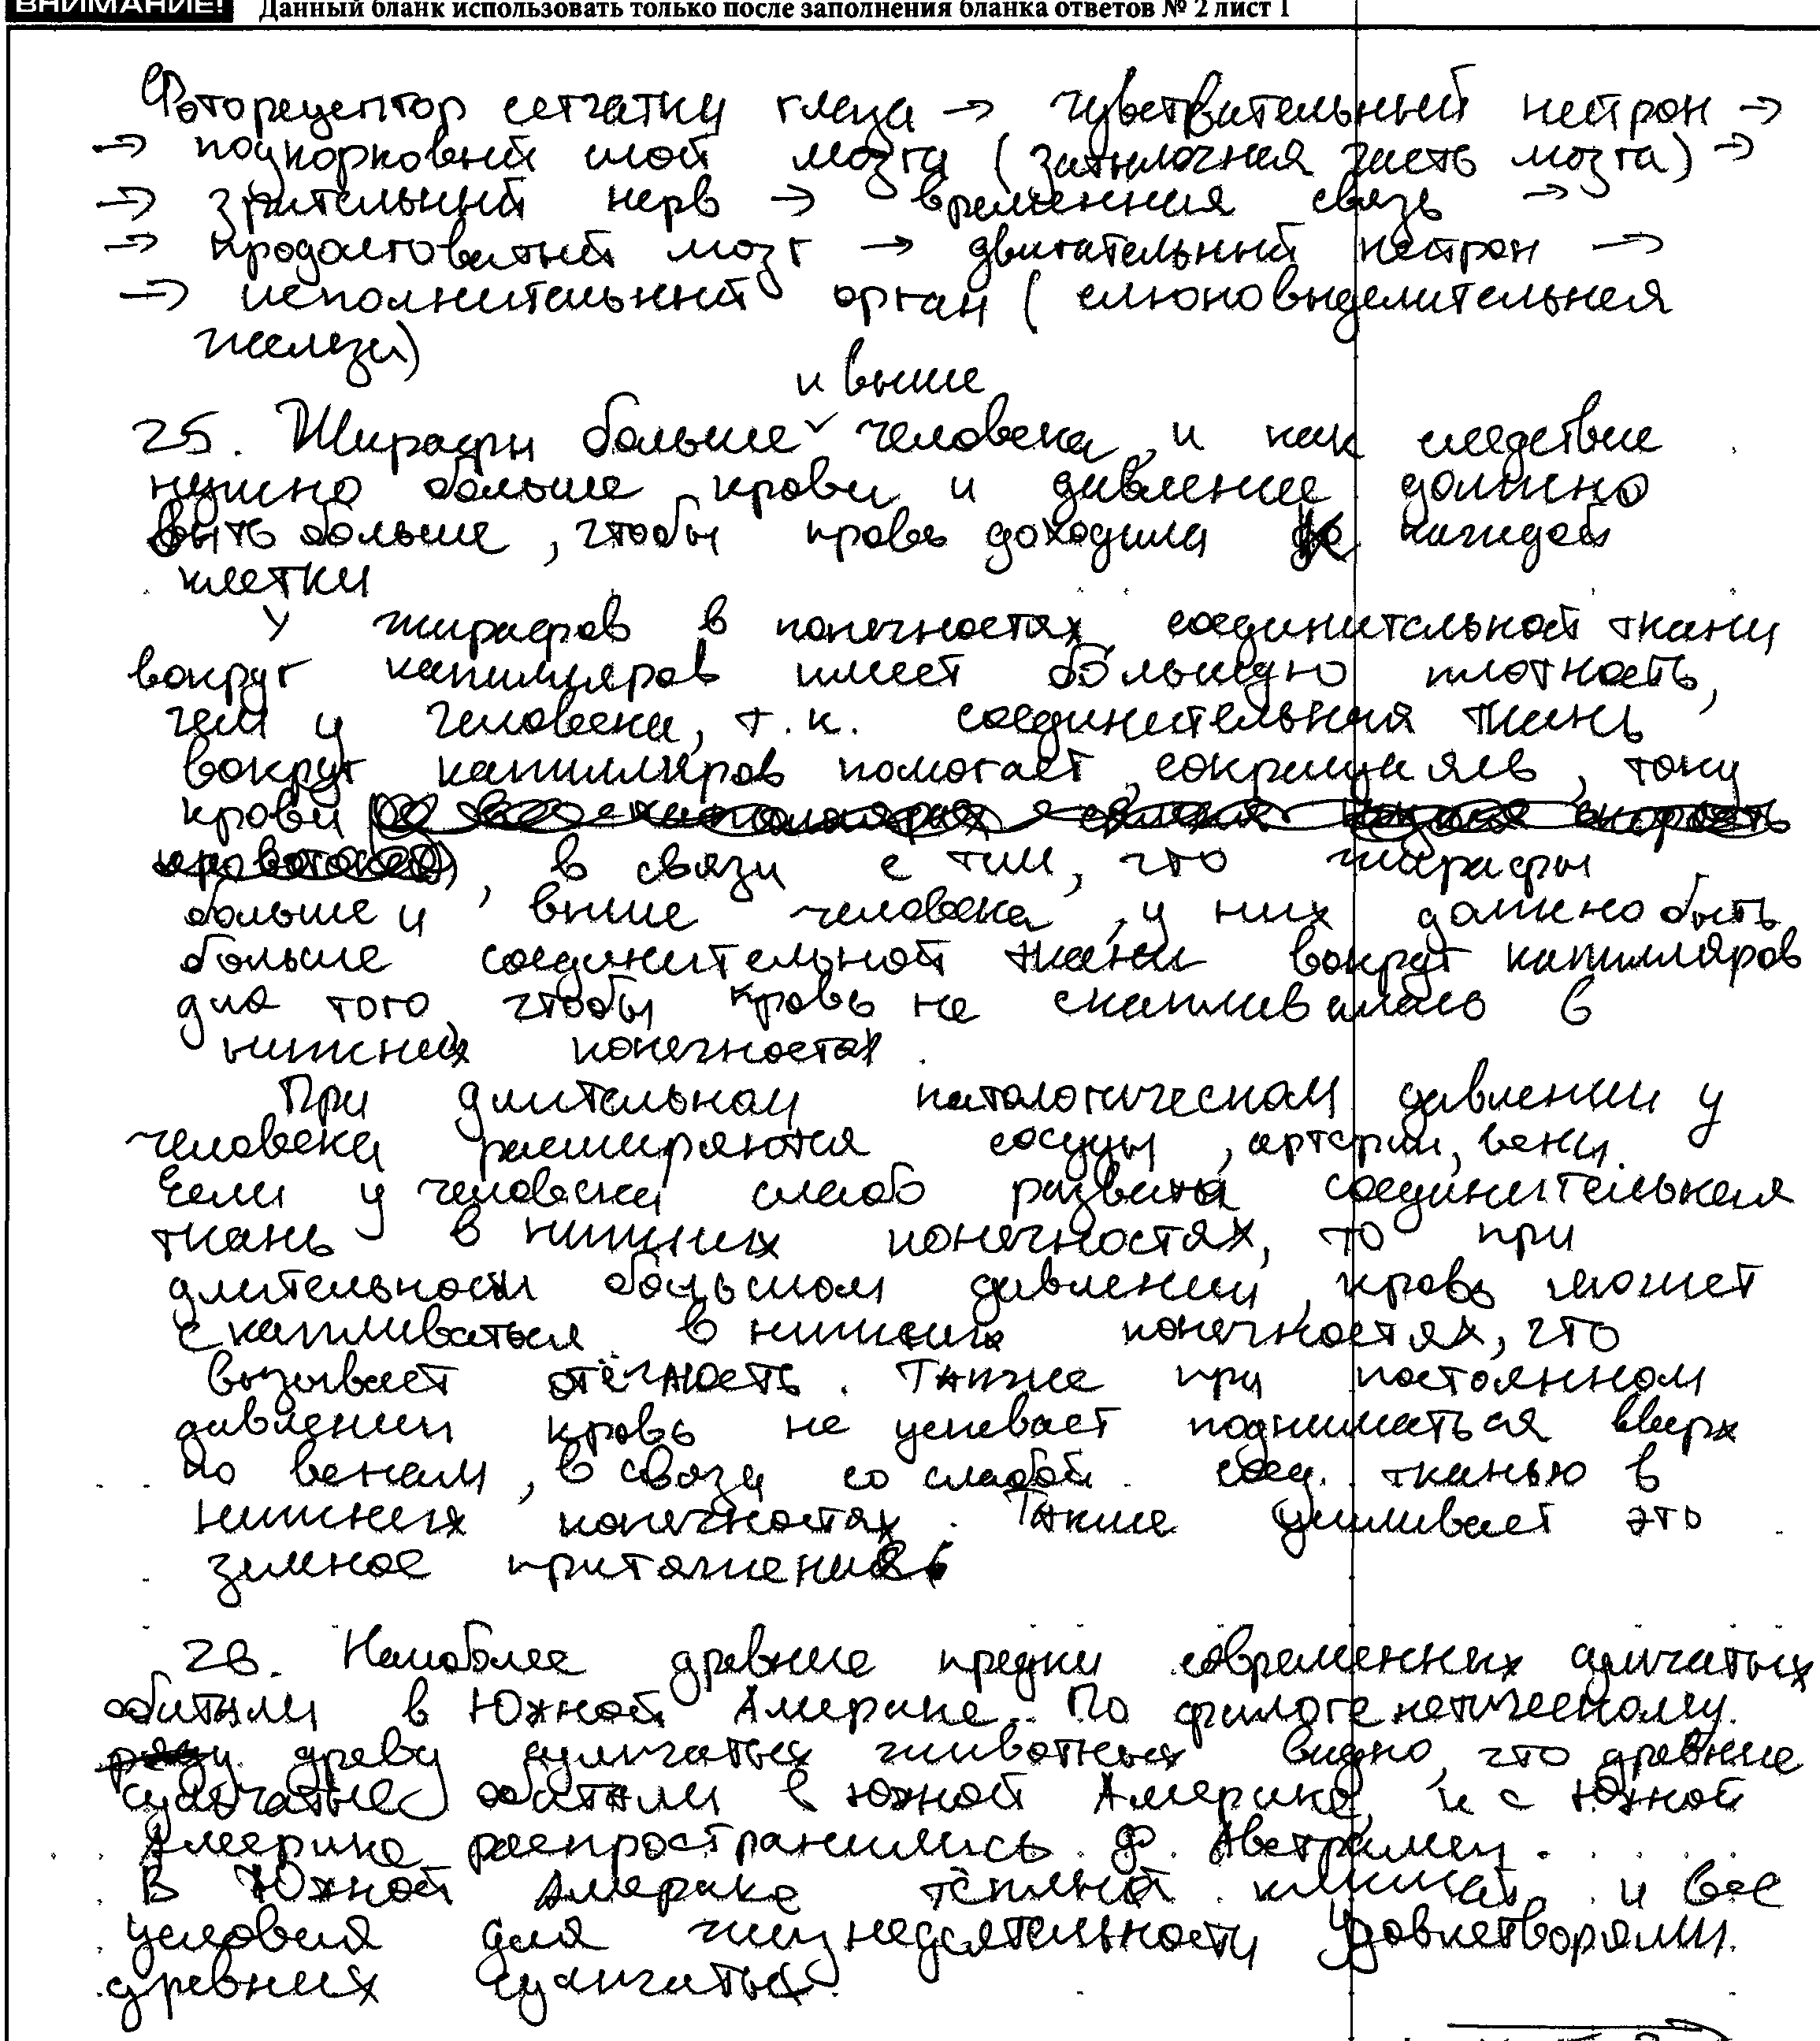 ВНИМАНИЕ! Данный бланк использовать только после заполнения бланка ответов № 2 лист 1
Фоторецептор сетчатки глаза → чувствительный нейрон →
→ подкорковый слой мозга (затылочная часть мозга) →
→ зрительный нерв → временная связь →
→ продолговатый мозг → двигательный нейрон →
→ исполнительный орган (слюновыделительная
железа)
и выше
25. Жирафы больше ˅ человека, и как следствие
нужно больше крови и давление должно
быть больше, чтобы кровь доходила до каждой
клетки
У жирафов в конечностях соединительной ткани
вокруг капилляров имеет большую плотность,
чем у человека, т.к. соединительная ткань
вокруг капилляров помогает, сокращаясь, току
крови
, в связи с тем, что жирафы
больше и выше человека, у них должно быть
больше соединительной ткани вокруг капилляров
для того, чтобы кровь не скапливалась в
нижних конечностях.
При длительном патологическом давлении у
человека расширяются сосуды, артерии, вены.
Если у человека слабо развита соединительная
ткань в нижних конечностях, то при
длительном большом давлении, кровь может
скапливаться в нижних конечностях, что
вызывает отёчность. Также при постоянном
давлении кровь не успевает подниматься вверх
по венам, в связи со слабой соед. тканью в
нижних конечностях. Также усиливает это
земное притяжение
26. Наиболее древние предки современных сумчатых
обитали в Южной Америке. По филогенетическому
древу сумчатых животных видно, что древние
сумчатые обитали в Южной Америке, и с Южной
Америке распространились до Австралии.
В Южной Америке тёплый климат и все
условия для жизнедеятельности удовлетворяли
древних сумчатых.